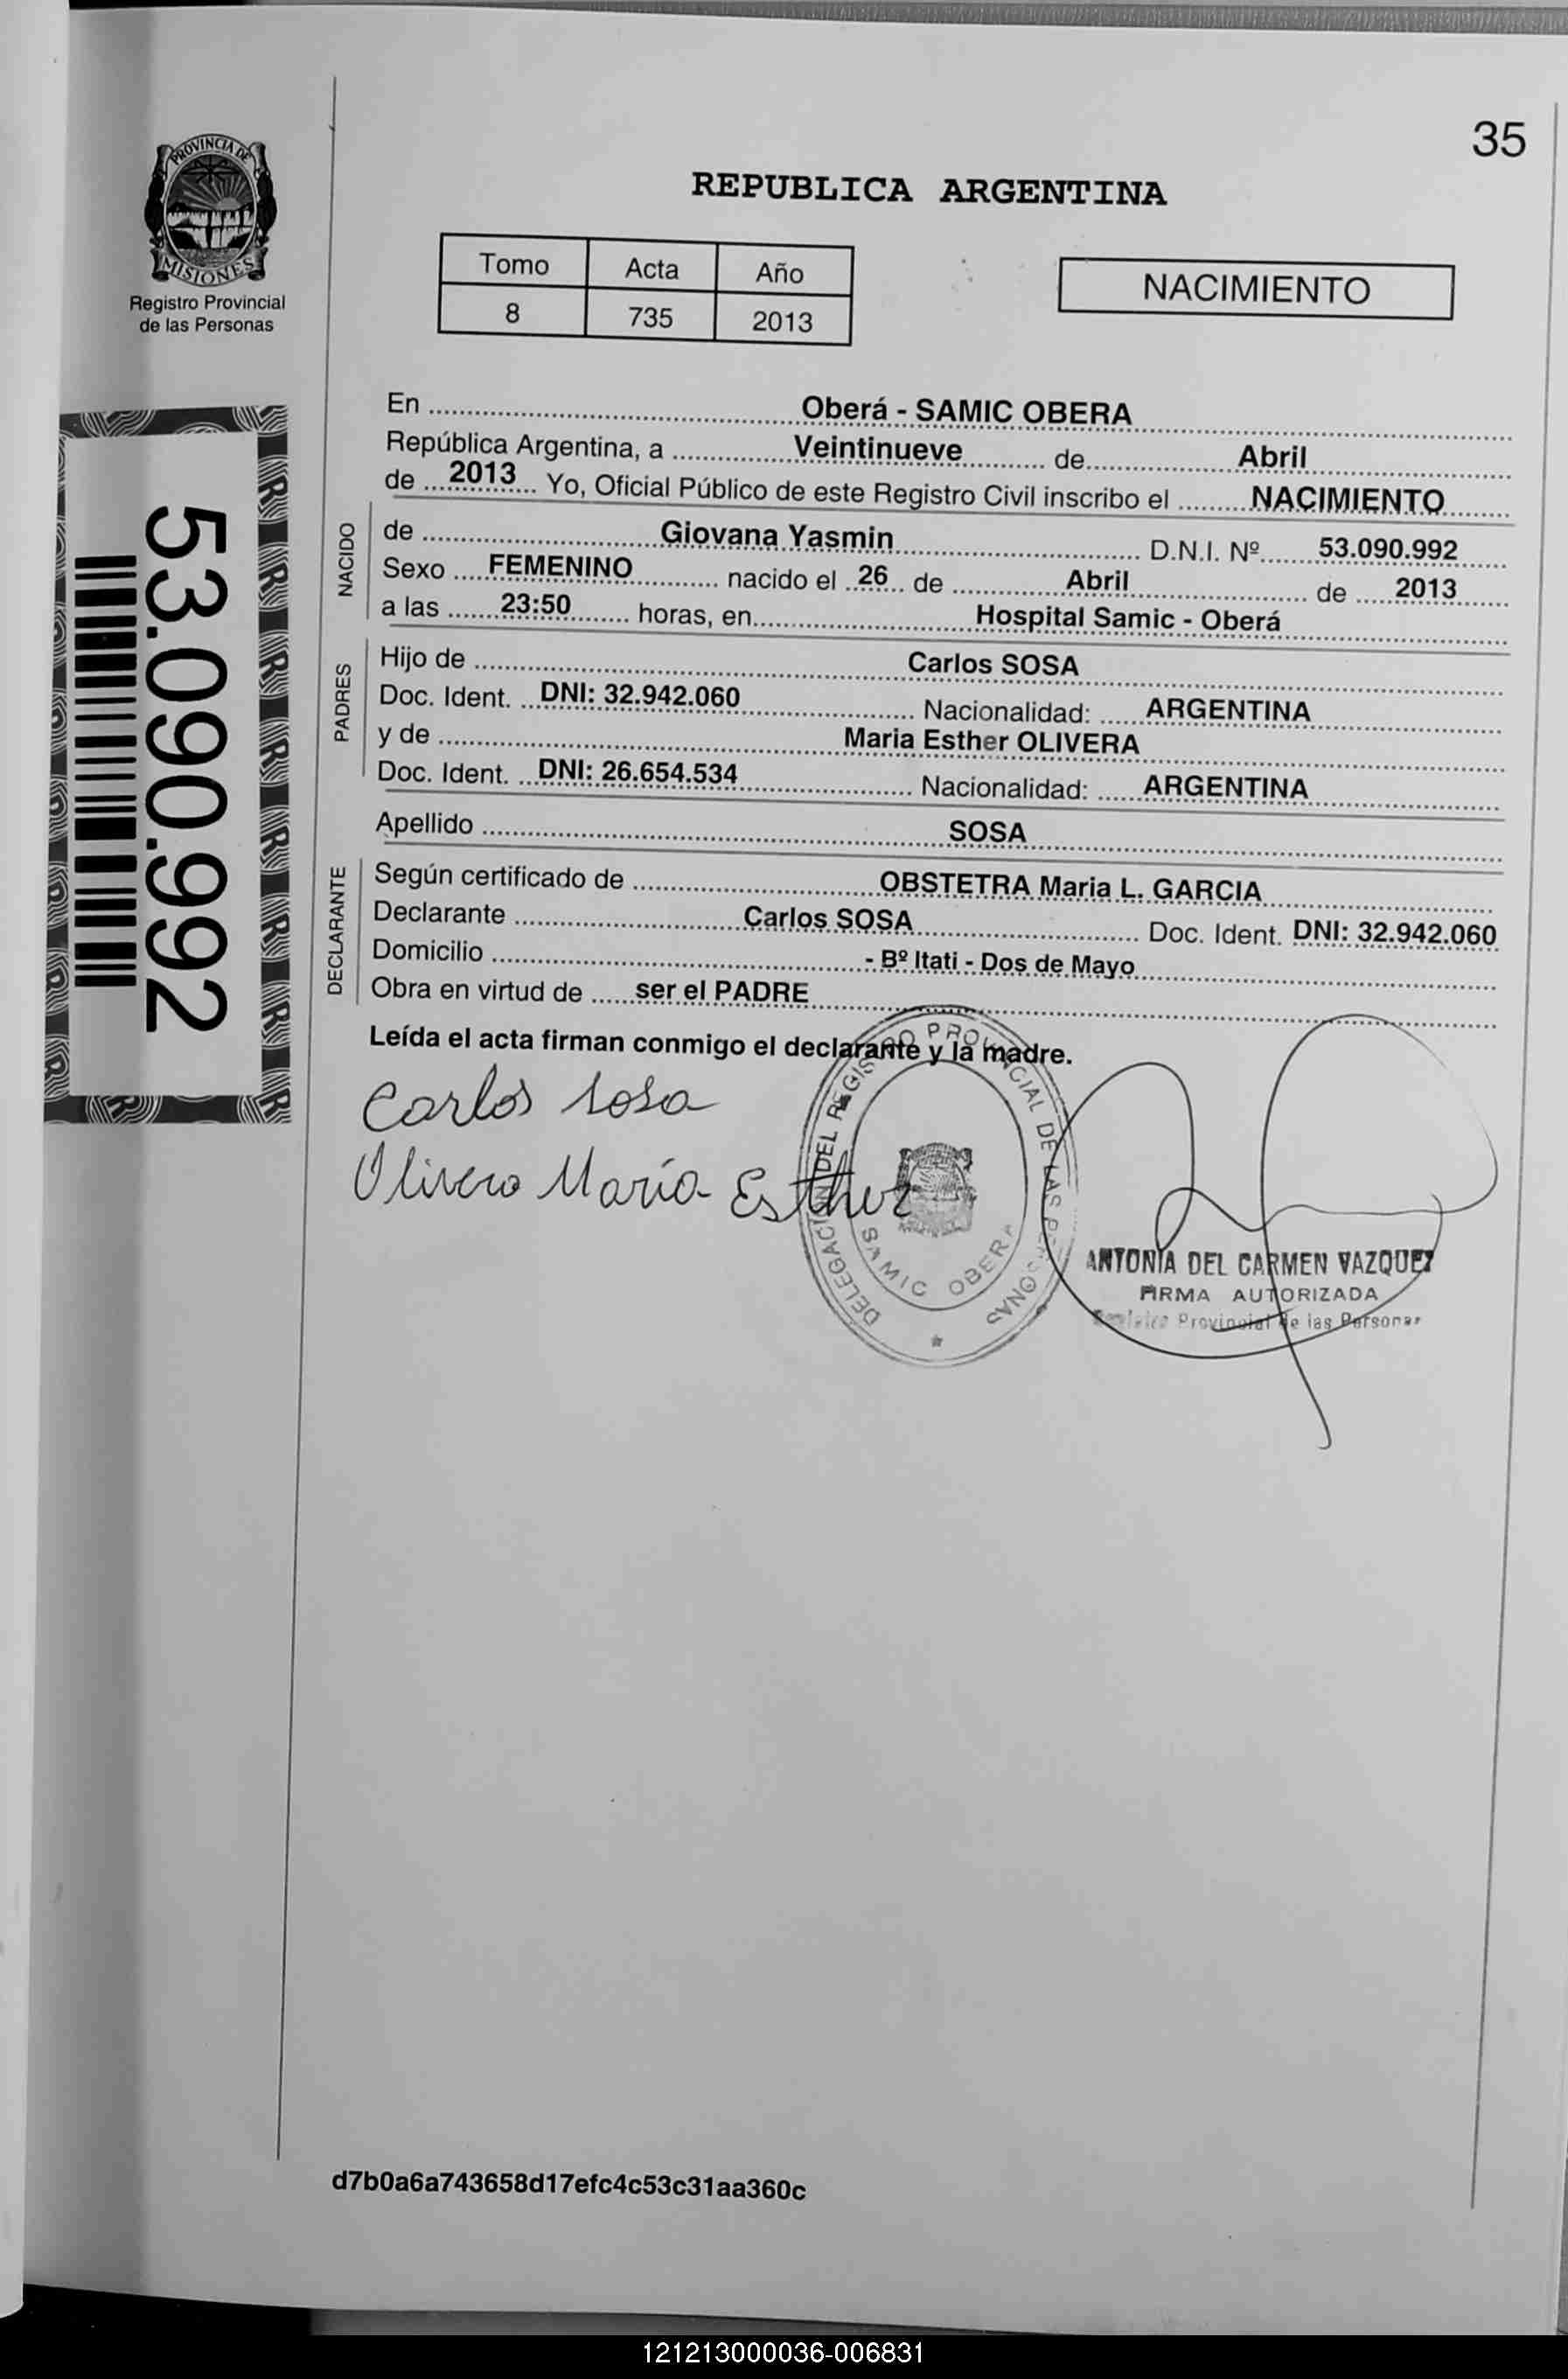 35
PROVINCIA DE
MISIONES
Registro Provincial
de las Personas
REPUBLICA ARGENTINA
Tomo Acta Año
8 735 2013
NACIMIENTO
53.090.992
En Oberá - SAMIC OBERA
República Argentina, a Veintinueve de Abril
de 2013 Yo, Oficial Público de este Registro Civil inscribo el NACIMIENTO
NACIDO
de Giovana Yasmin D.N.I. Nº 53.090.992
Sexo FEMENINO nacido el 26 de Abril de 2013
a las 23:50 horas, en Hospital Samic - Oberá
PADRES
Hijo de Carlos SOSA
Doc. Ident. DNI: 32.942.060 Nacionalidad: ARGENTINA
y de Maria Esther OLIVERA
Doc. Ident. DNI: 26.654.534 Nacionalidad: ARGENTINA
Apellido SOSA
DECLARANTE
Según certificado de OBSTETRA Maria L. GARCIA
Declarante Carlos SOSA Doc. Ident. DNI: 32.942.060
Domicilio - Bº Itati - Dos de Mayo
Obra en virtud de ser el PADRE
Leída el acta firman conmigo el declarante y la madre.
Carlos Sosa
Olivera María Esther
DELEGACIÓN DEL REGISTRO PROVINCIAL DE LAS PERSONAS
SAMIC OBERA
ANTONIA DEL CARMEN VAZQUEZ
FIRMA AUTORIZADA
Provincial de las Personas
d7b0a6a743658d17efc4c53c31aa360c
121213000036-006831